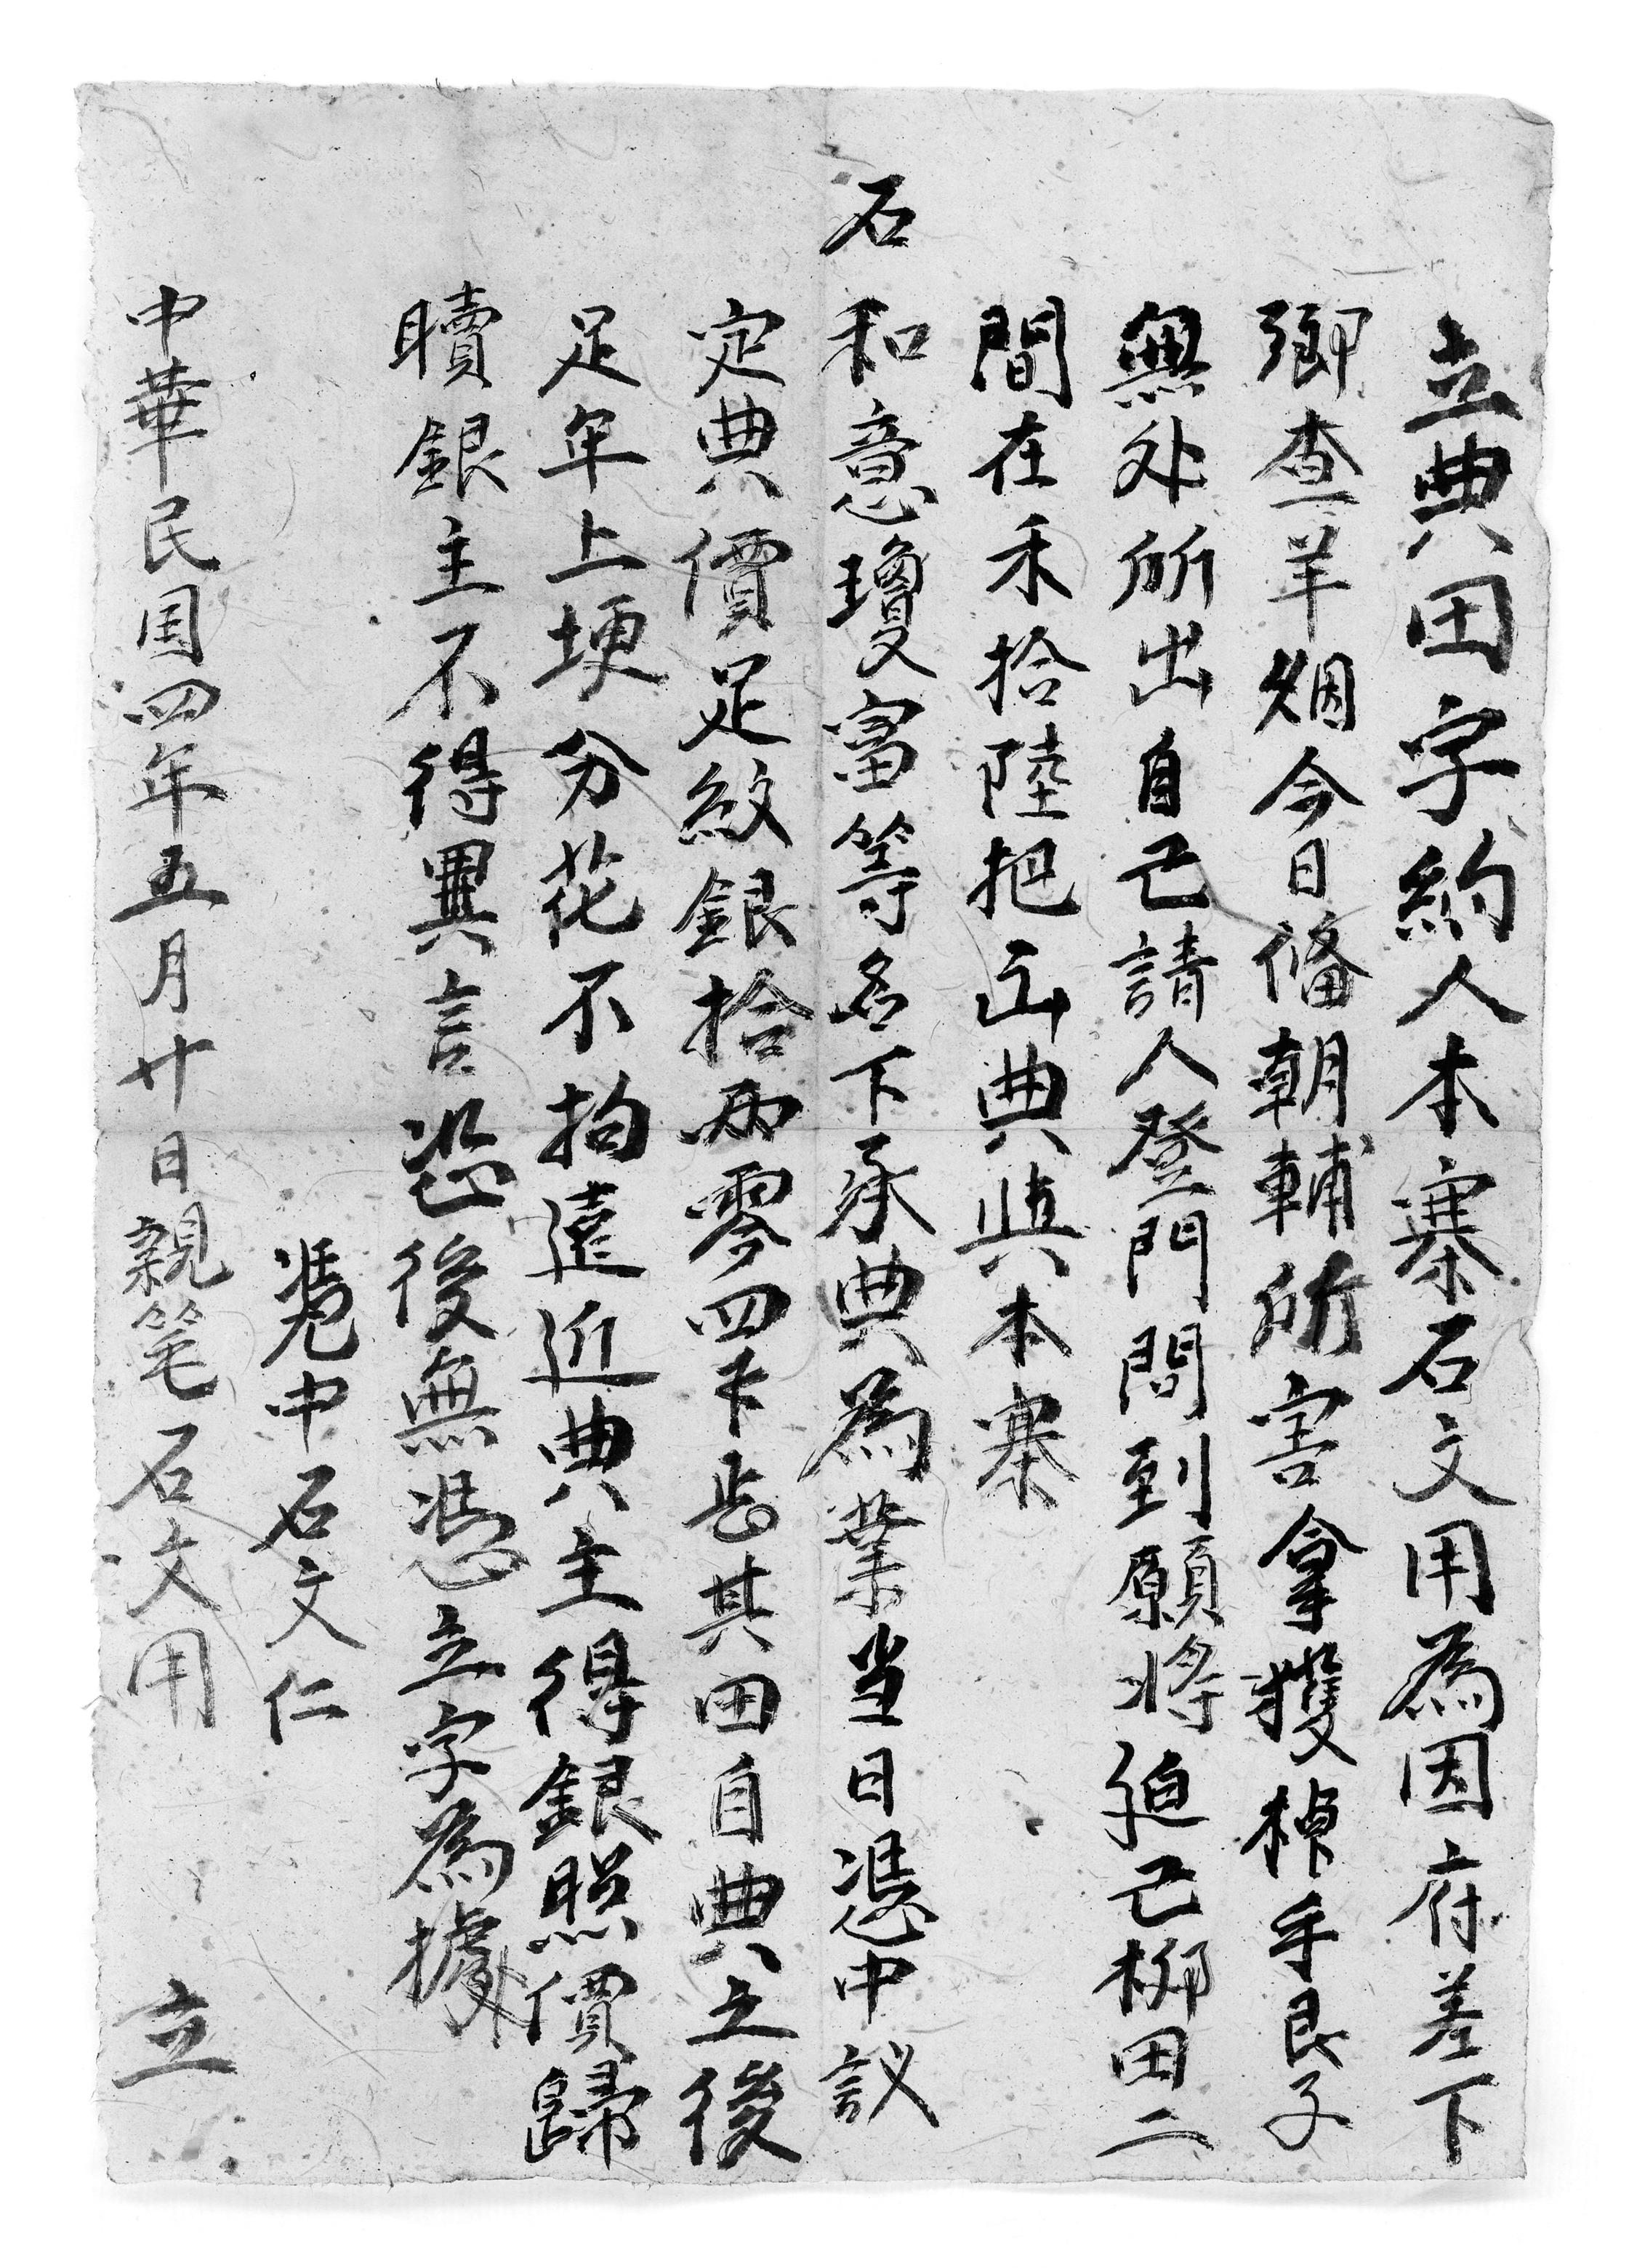 立典田字約人本寨石文用為因府差下
鄉查羊烟今日俻朝輔所害拿獲棹手良子
無处所出自己請人登門問到願將廹己柳田二
間在禾拾陸把出典與本寨
石和意瓊富等名下承典為業当日憑中議
定典價足紋銀拾兩零四卡岳其田自典之後
足年上埂分花不拘遠近典主得銀照價歸
贖銀主不得異言恐後無憑立字為據
凴中石文仁
中華民国四年五月廿日親笔石文用 立